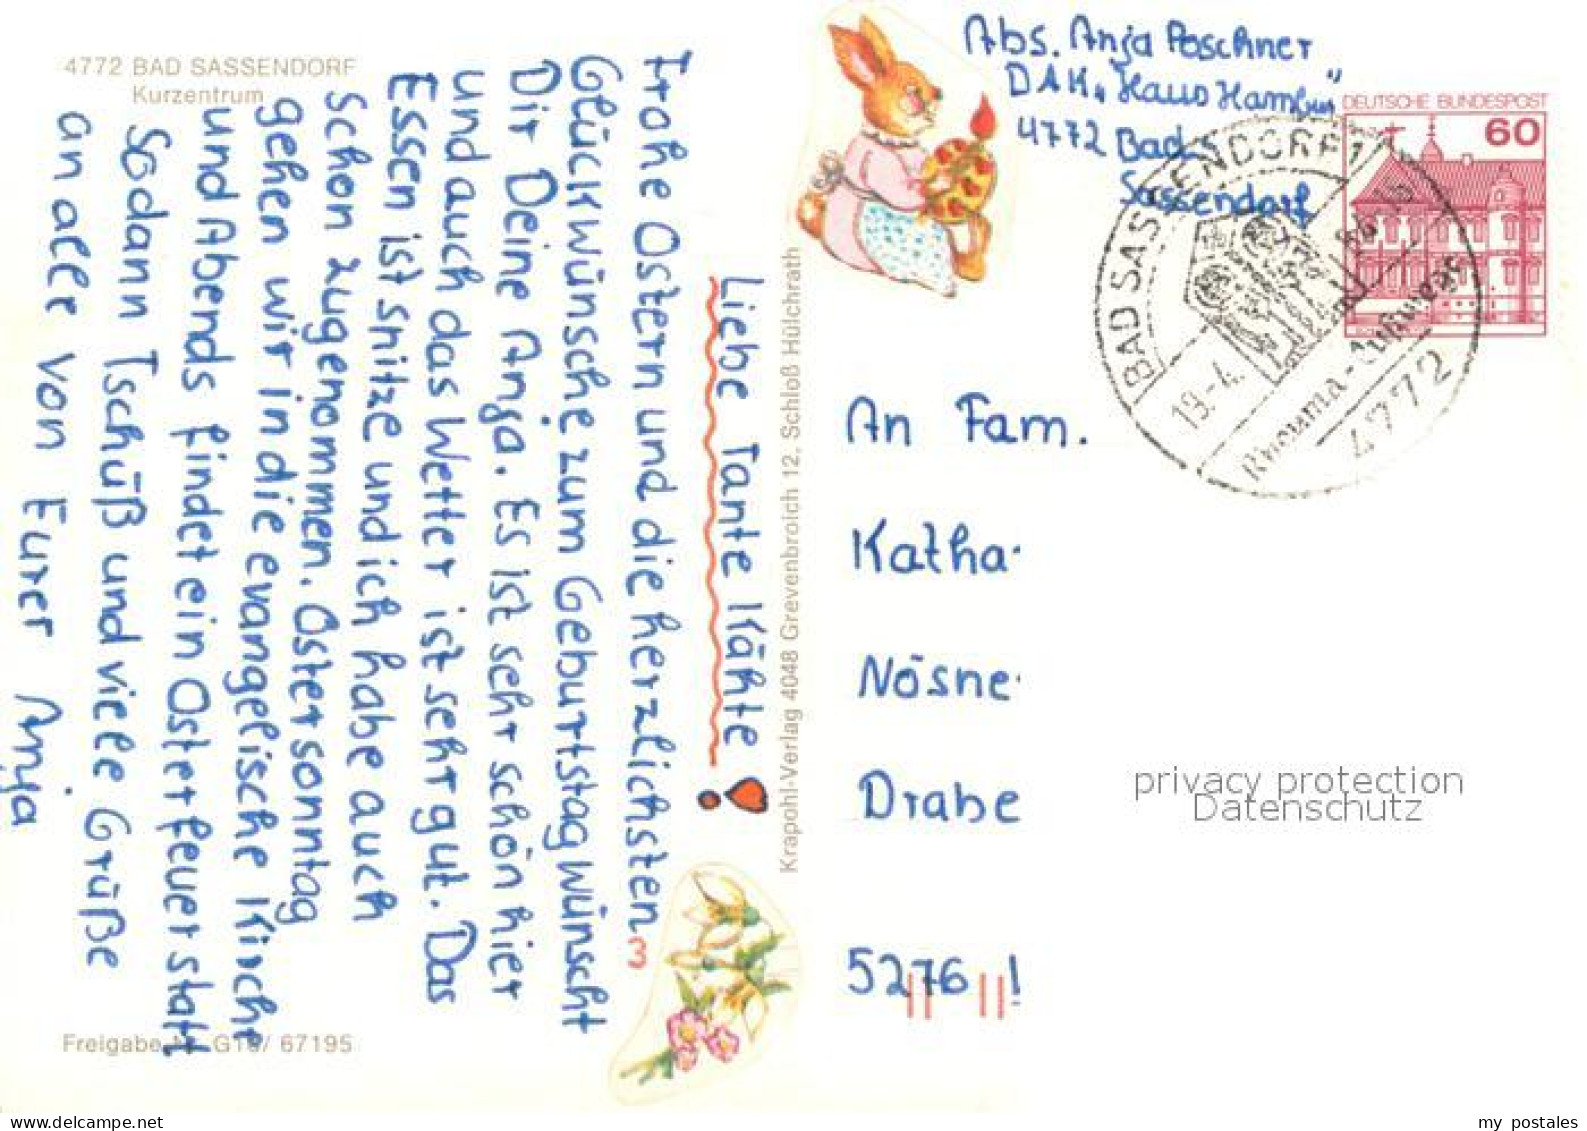 4772 BAD SASSENDORF
Kurzentrum
Liebe Tante Käthe!
Frohe Ostern und die herzlichsten
Glückwünsche zum Geburtstag wünscht
Dir Deine Anja. Es ist sehr schön hier
und auch das Wetter ist sehr gut. Das
Essen ist spitze und ich habe auch
schon zugenommen. Ostersonntag
gehen wir in die evangelische Kirche
und Abends findet ein Osterfeuer statt
Sodann Tschüß und viele Grüße
an alle von Eurer Anja
3
Freigabe Nr. G10/ 67195
Krapohl-Verlag 4048 Grevenbroich 12, Schloß Hülchrath
Abs. Anja Poschner
DAK „Haus Hamburg"
4772 Bad
Sassendorf
DEUTSCHE BUNDESPOST
60
BAD SASSENDORF 1
19.-4.
Rheuma
4772
An Fam.
Katha
Nösne
Drabe
5276 !
privacy protection
Datenschutz
my postales